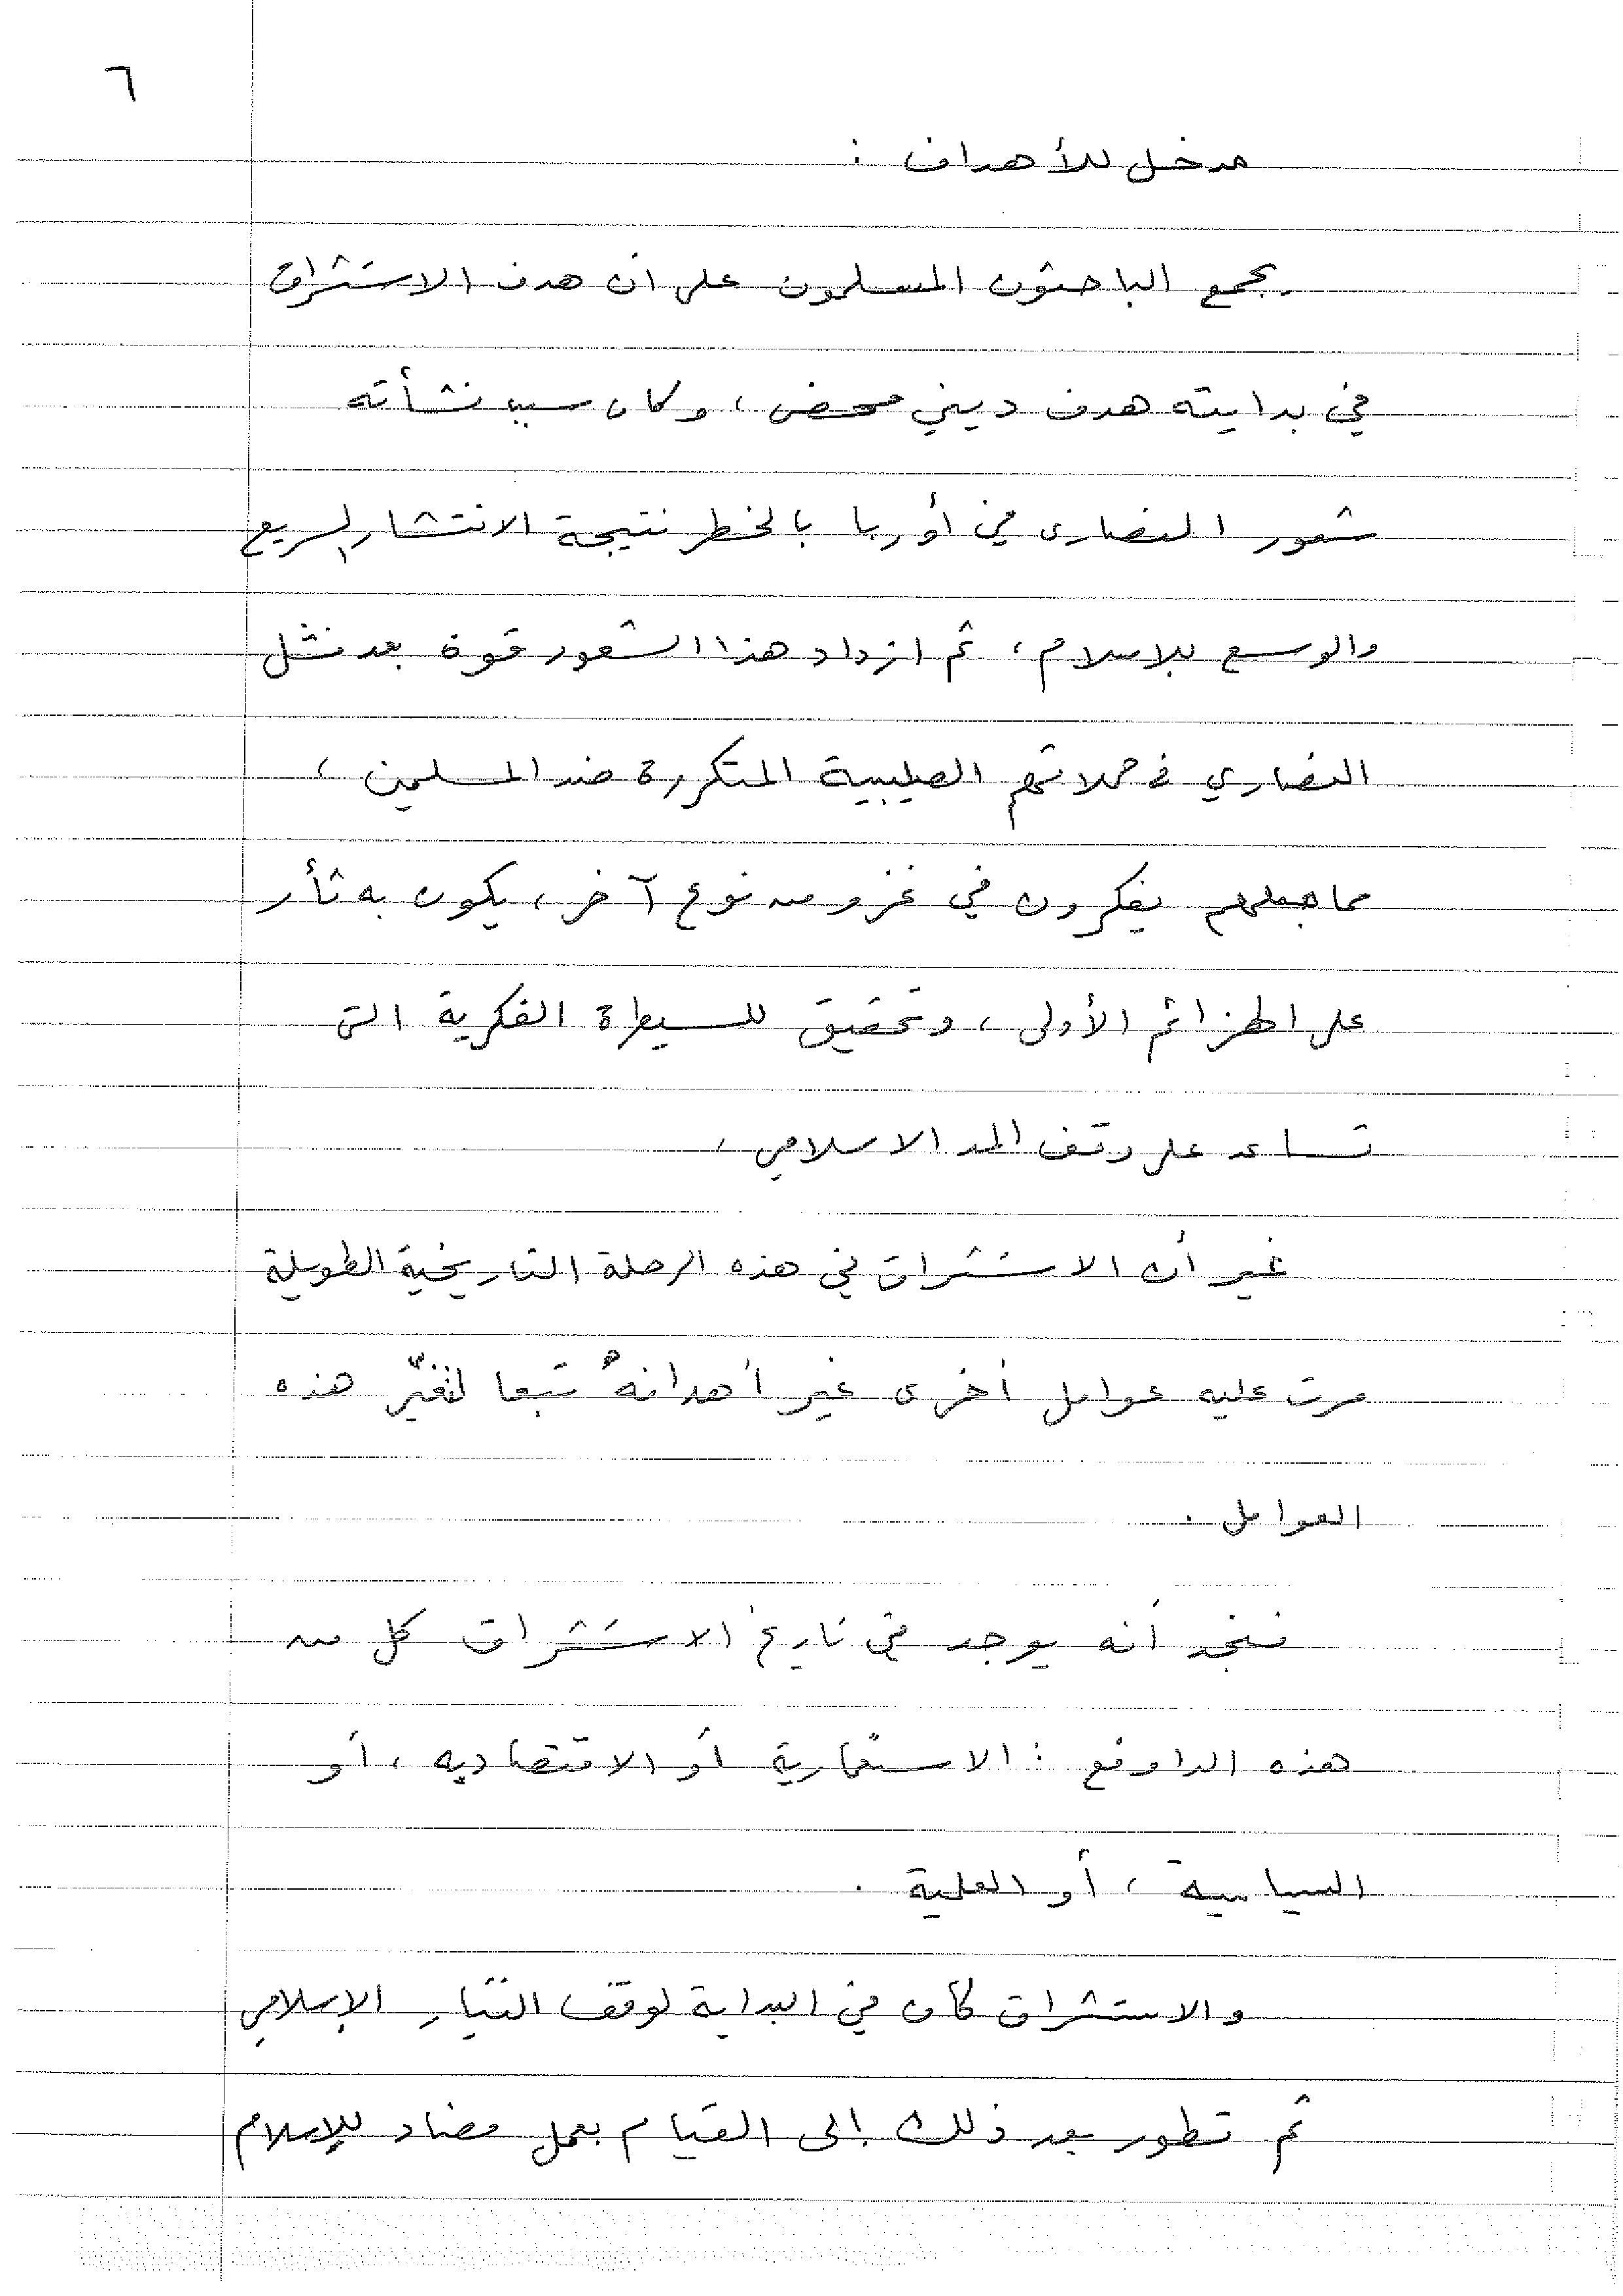 ٦
مدخل للأهداف :
يجمع الباحثون المسلمون على أن هدف الاستشراق
في بدايته هدف ديني محض ، وكان سبب نشأته
شعور النصارى في أوربا بالخطر نتيجة الانتشار السريع
والوسع للإسلام ، ثم ازداد هذا الشعور قوة بعد فشل
النصارى في حملاتهم الصليبية المتكررة ضد المسلمين ،
مما جعلهم يفكرون في غزو من نوع آخر ، يكون به ثأر
على الهزائم الأولى ، وتحقيق للسيطرة الفكرية التي
تساعد على وقف المد الاسلامي ،
غير أن الاستشراق في هذه الرحلة التاريخية الطويلة
مرت عليه عوامل أخرى غير أهدافهُ تبعا لتغيّر هذه
العوامل .
فنجد أنه يوجد في تاريخ الاستشراق كل من
هذه الداوفع : الاستعمارية أو الاقتصاديه ، أو
السياسية ، أو العلمية .
والاستشراق كان في البداية لوقف التيار الإسلامي
ثم تطور بعد ذلك إلى القيام بعمل مضاد للإسلام